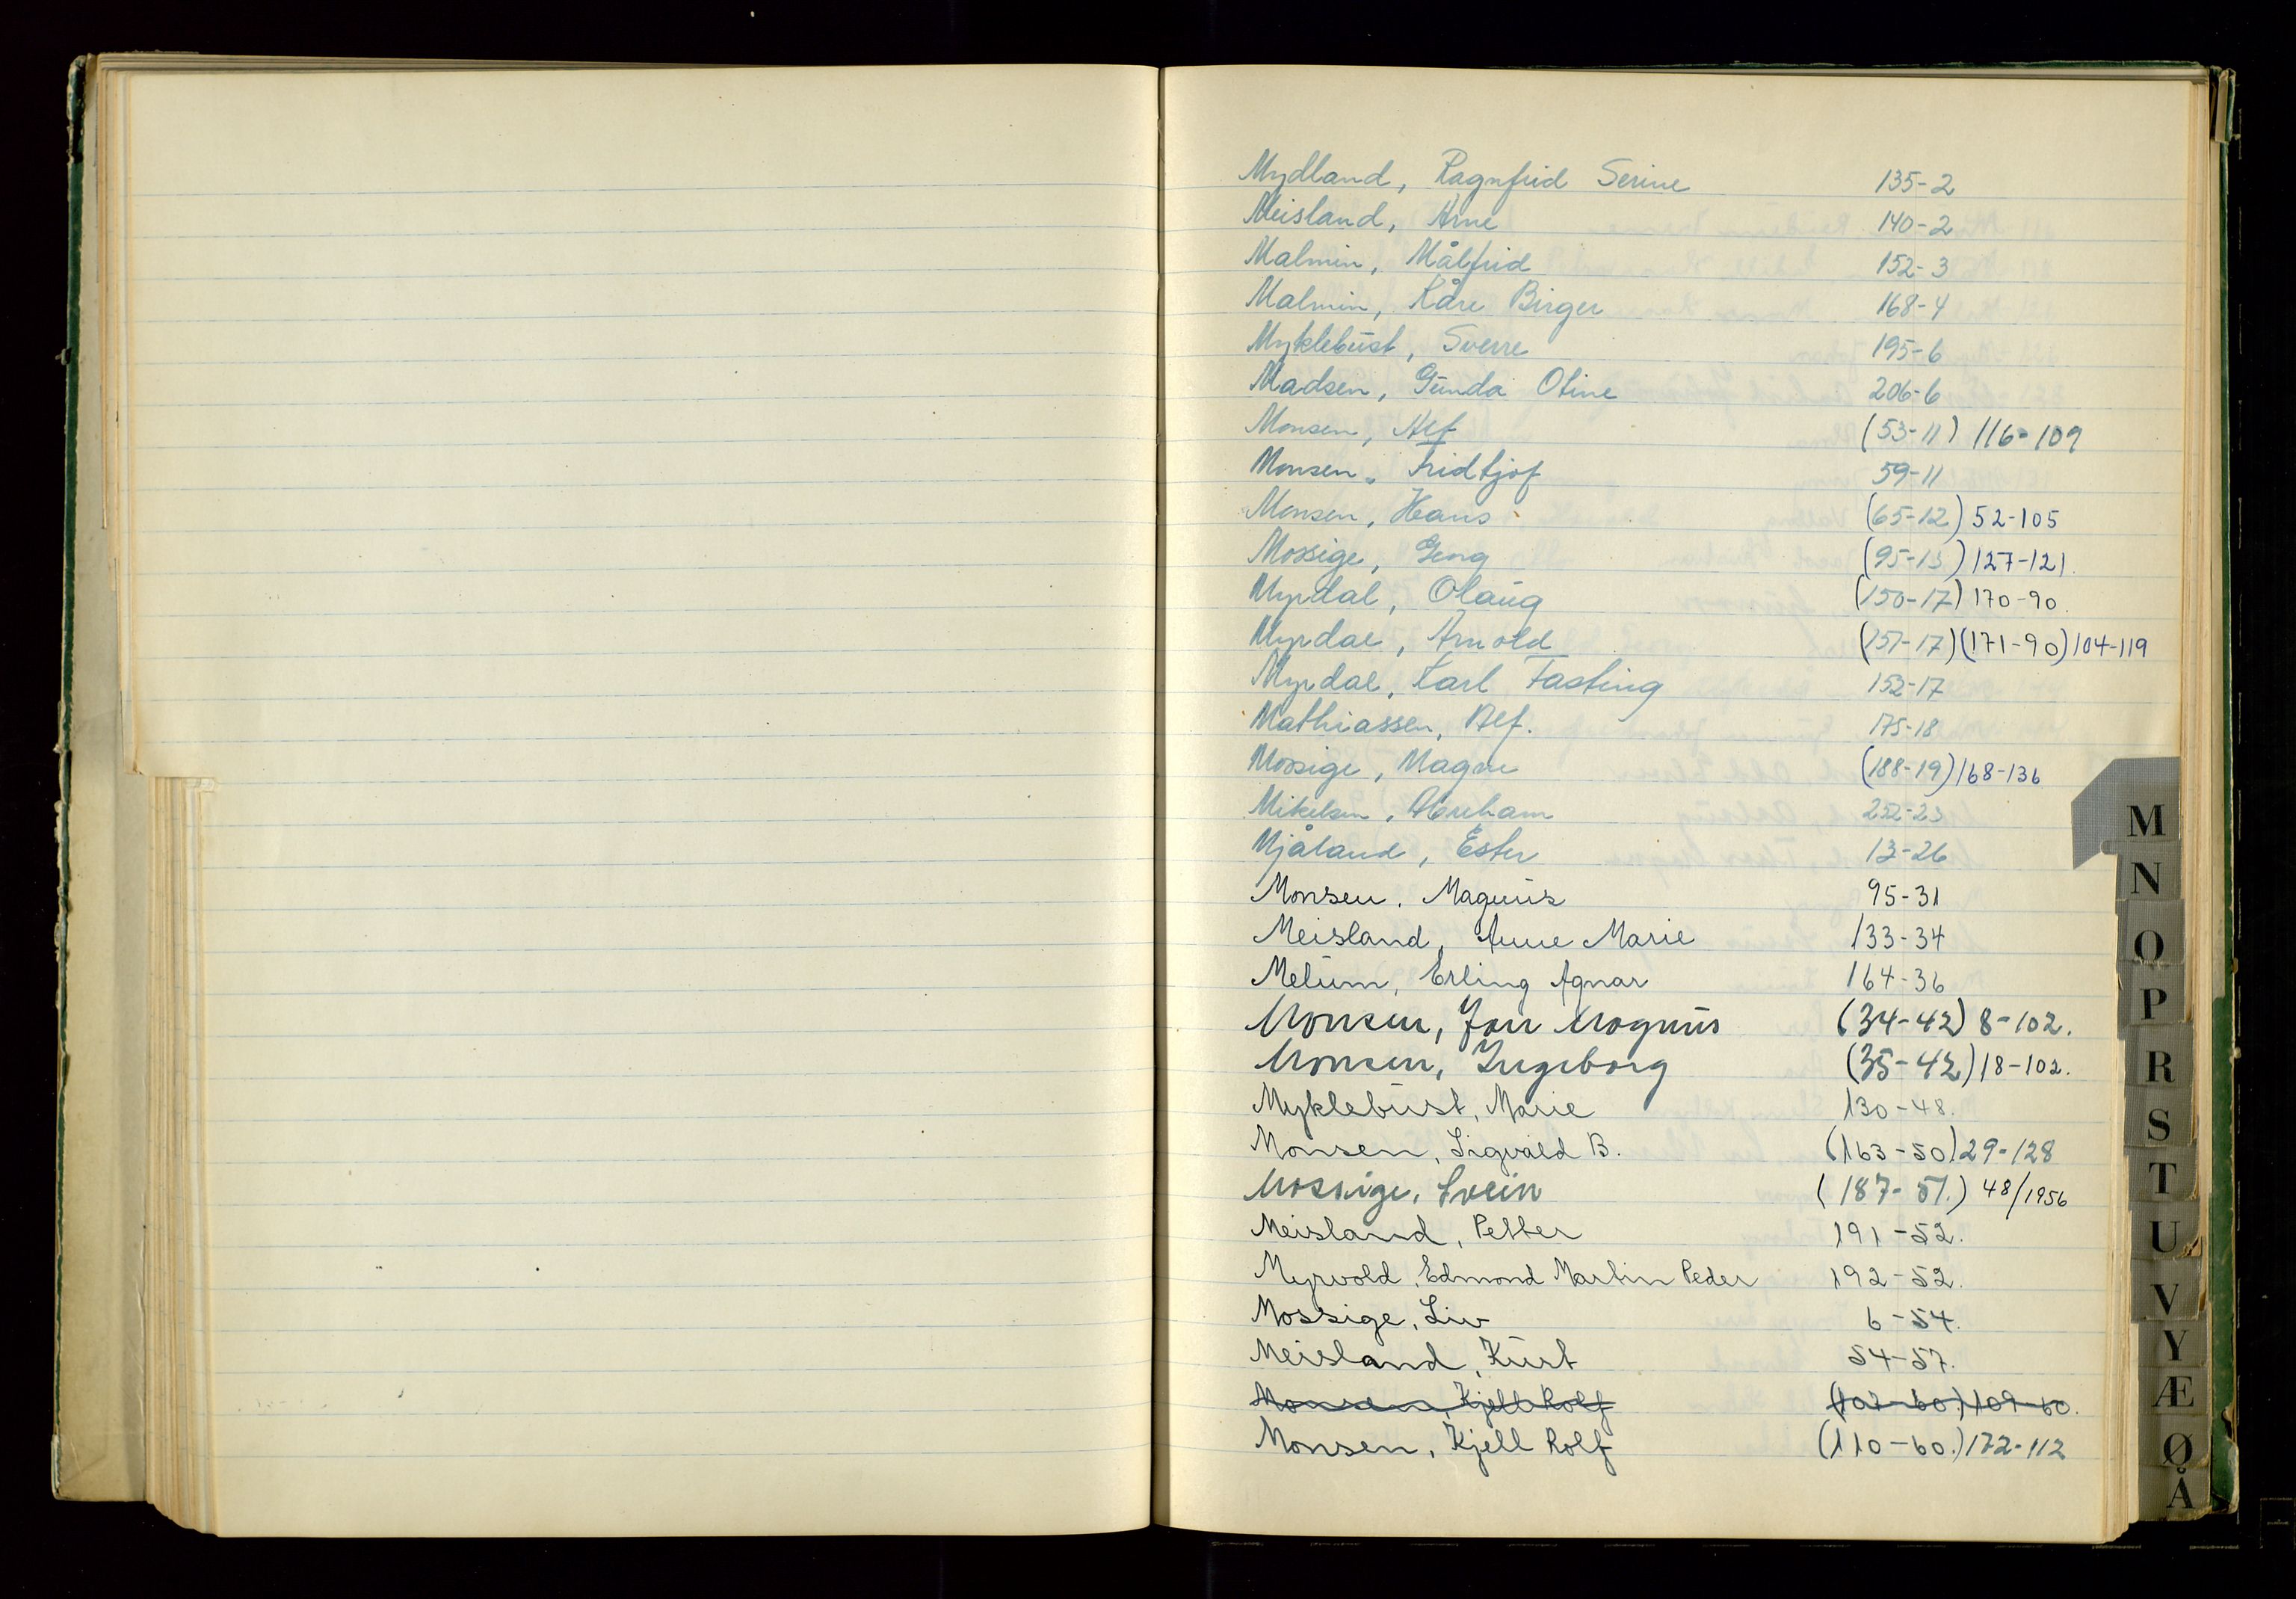 Mydland, Ragnfrid Serine 135-2
Meisland, Arne 140-2
Malmin, Målfrid 152-3
Malmin, Kåre Birger 168-4
Myklebust, Sverre 195-6
Madsen, Gunda Otine 206-6
Monsen, Alf (53-11) 116-109
Monsen, Fridtjof 59-11
Monsen, Hans (65-12) 52-105
Mossige, Georg (95-13) 127-121.
Myrdal, Olaug (150-17) 170-90.
Myrdal, Arnold (151-17)(171-90) 104-119
Myrdal, Karl Fasting 152-17
Mathiassen, Alf. 175-18
Mossige, Magne (188-19) 168-136
Mikelsen, Abraham 252-23
Mjåland, Ester 13-26
Monsen, Magnus 95-31
Meisland, Anne Marie 133-34
Melum, Erling Agnar 164-36
Monsen, Jon Magnus (34-42) 8-102.
Monsen, Ingeborg (35-42) 18-102.
Myklebust, Marie 130-48.
Monsen, Sigvald B. (163-50) 29-128
Mossige, Svein (187-51.) 48/1956
Meisland, Petter 191-52.
Myrvold, Edmond Martin Peder 192-52.
Mossige, Liv 6-54.
Meisland, Kurt 54-57.
Monsen, Kjell Rolf (107-60.) 109-60.
Monsen, Kjell Rolf (110-60.) 172-112
M
N
O
P
R
S
T
U
V
Y
Æ
Ø
Å